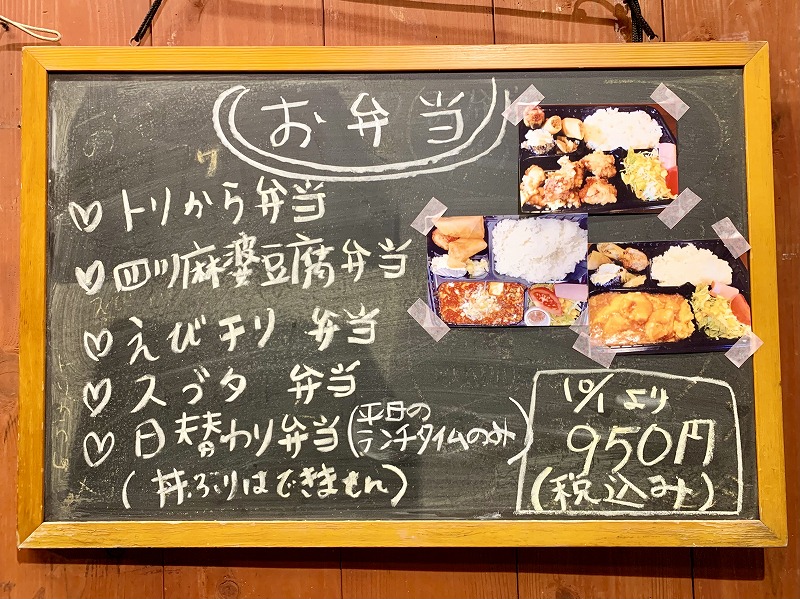 お弁当
♡トリから弁当
♡四川麻婆豆腐弁当
♡えびチリ 弁当
♡スヅタ 弁当
♡日替わり弁当(平日のランチタイムのみ)
(丼ぶりはできません)
10/1より
950円
(税込み)